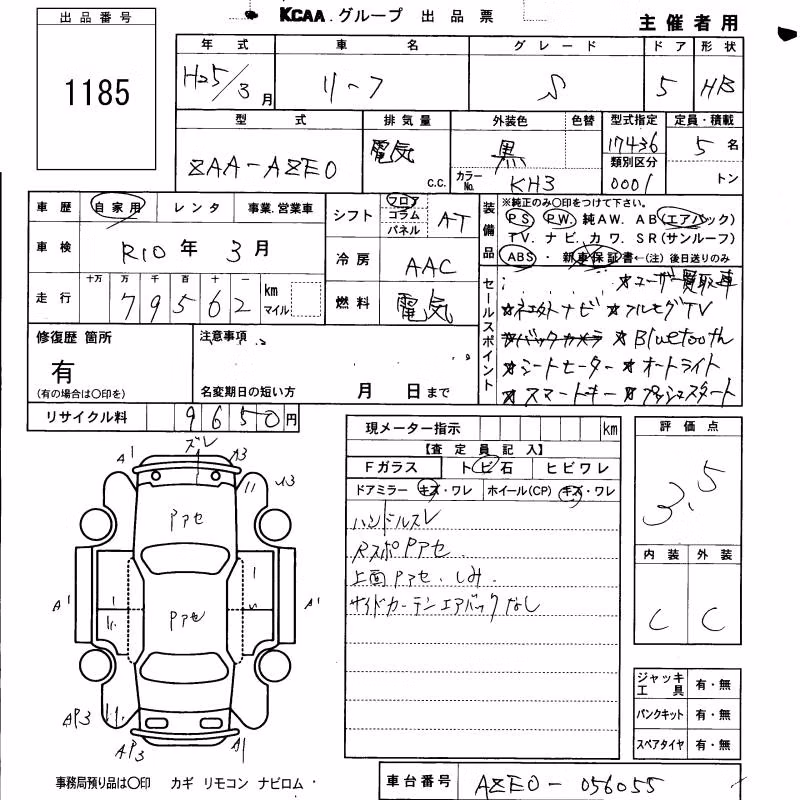 出品番号
KCAA.グループ 出品票
主催者用
1185
年式 車名 グレード ドア 形状
H25/3月 リーフ S 5 HB
型式 排気量 外装色 色替 型式指定 定員・積載
ZAA-AZE0 電気 c.c. 黒 カラーNo. KH3 17436 類別区分 0001 5名 トン
車歴 自家用 レンタ 事業.営業車
シフト フロア コラム パネル AT
車検 R10年 3月
冷房 AAC
走行 十万 万 千 百 十 一
79562 km マイル
燃料 電気
装備品 ※純正のみ○印をつけて下さい。
PS PW. 純AW. AB(エアバック)
TV. ナビ. カワ. SR(サンルーフ)
ABS・新車保証書←(注)後日送りのみ
セールスポイント
☆ユーザー買取車
☆ネエタナビ ☆フルセグTV
☆バックカメラ ☆Bluetooth
☆シートヒーター ☆オートライト
☆スマートキー ☆プッシュスタート
修復歴 箇所
有
(有の場合は○印を)
注意事項
名変期日の短い方 月 日まで
リサイクル料 9650円
ズレ
A1 A3
11 U3
Pアセ
A1 A1
Pアセ
AP3
AP3 A1
現メーター指示 km
【査定員記入】
Fガラス トビ石 ヒビワレ
ドアミラー キズ・ワレ ホイール(CP) キズ・ワレ
ハンドルスレ
Rスポ Pアセ.
上面 Pアセ. しみ.
サイドカーテンエアバックなし
評価点
3.5
内装 外装
C C
ジャッキ工具 有・無
パンクキット 有・無
スペアタイヤ 有・無
事務局預り品は○印 カギ リモコン ナビロム
車台番号 AZE0-056055